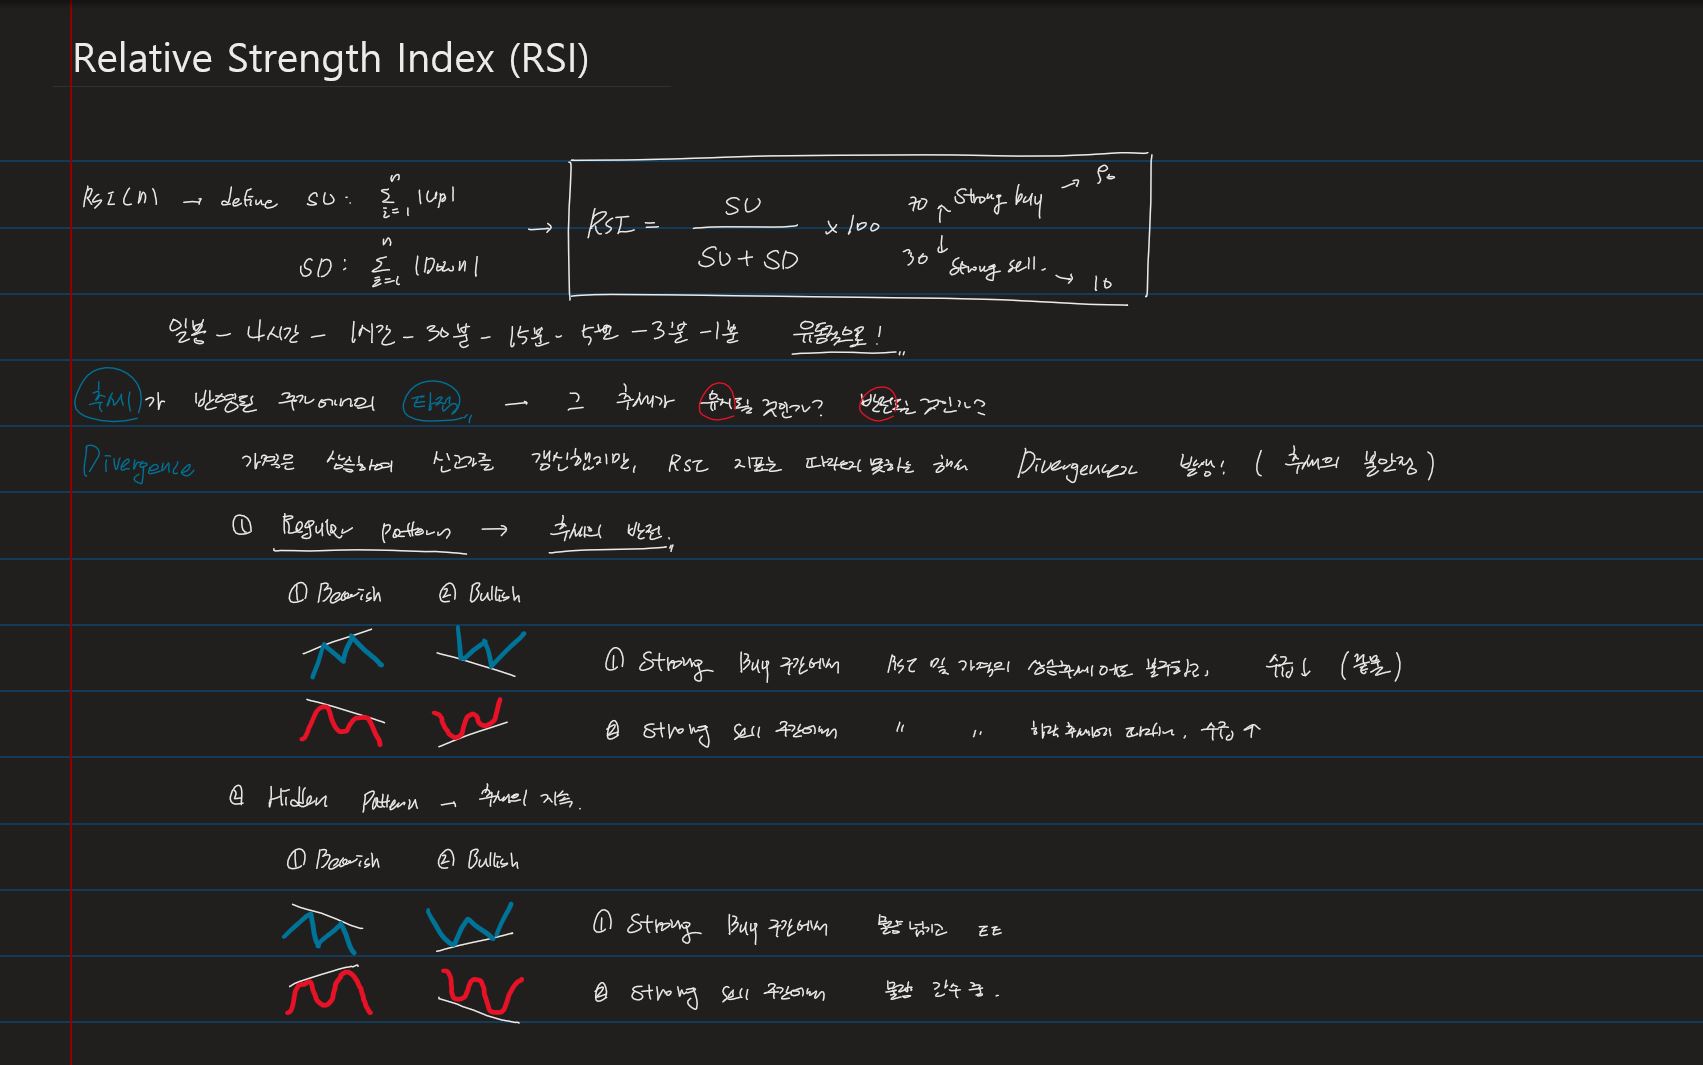 Relative Strength Index (RSI)
RSI(n) → define SU: n ∑ i=1 |Up|
SD: n ∑ i=1 |Down|
→ RSI = SU / SU + SD × 100
70 ↑ Strong buy → 90
30 ↓ Strong sell. → 10
일봉 - 4시간 - 1시간 - 30분 - 15분 - 5분 - 3분 - 1분 유동적으로!
추세가 반영된 주가에서의 타점 → 그 추세가 유지될 것인가? 반전될 것인가?
Divergence 가격은 상승하여 신고가를 갱신했지만, RSI 지표는 따라가지 못하는 해서 Divergence가 발생! (추세의 불안정)
① Regular pattern → 추세의 반전.
① Bearish ② Bullish
① Strong Buy 구간에서 RSI 및 가격의 상승추세에도 불구하고, 수급↓ (끝물)
② Strong sell 구간에서 " " 하락 추세에 따라, 수급 ↑
② Hidden Pattern → 추세의 지속.
① Bearish ② Bullish
① Strong Buy 구간에서 물량 넘기고 ㅌㅌ
② Strong sell 구간에서 물량 간수 중.